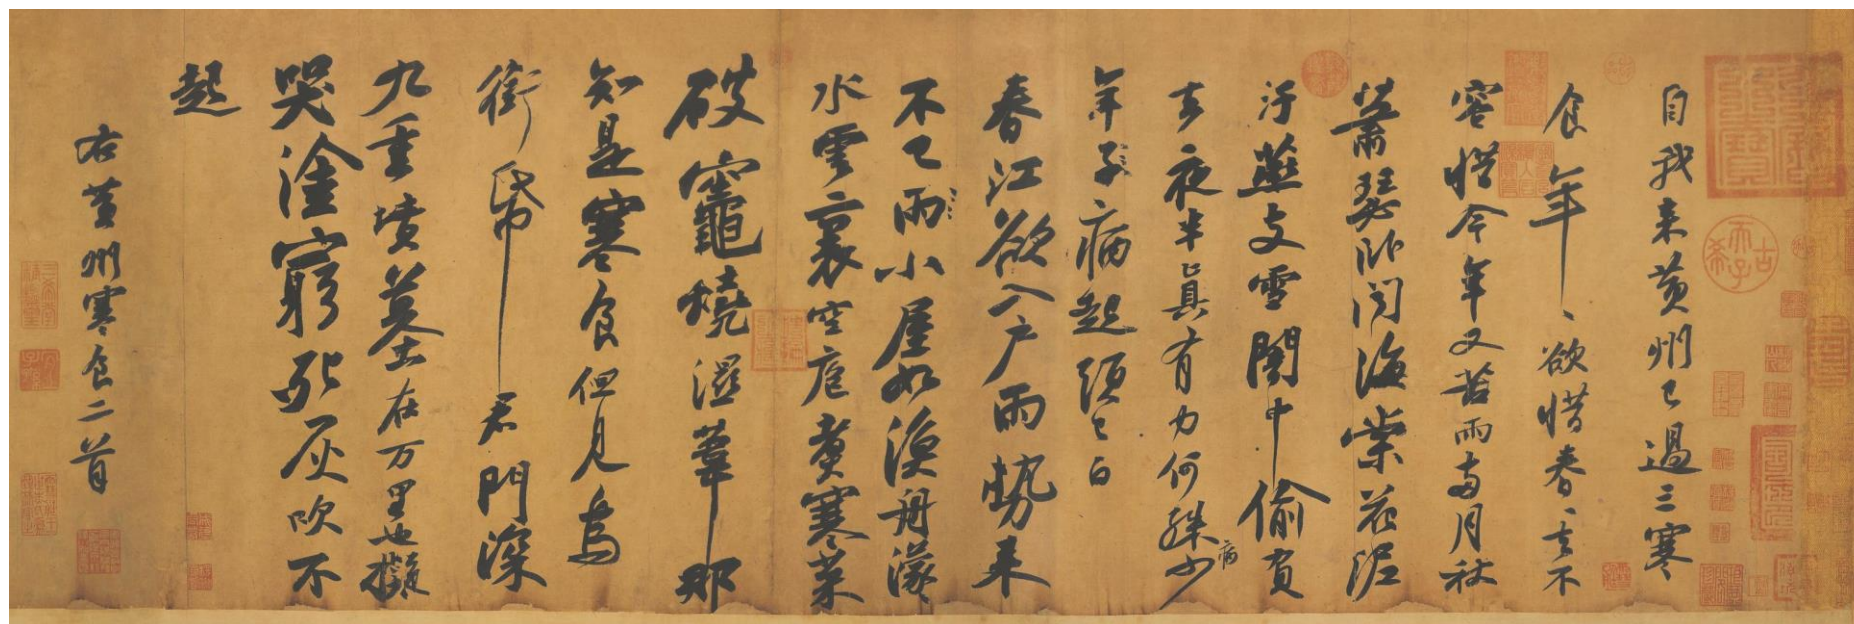 自我来黄州已過三寒
食年ヽ欲惜春ヽ去不
容惜今年又苦雨兩月秋
蕭瑟卧聞海棠花泥
汙燕支雪闇中偷負
去夜半真有力何殊病少
年子病起頭已白
春江欲入户雨勢来
不已雨小屋如漁舟濛
水雲裏空庖煮寒菜
破竈燒濕葦那
知是寒食但見烏
銜帋君門深
九重墳墓在万里也擬
哭塗窮死灰吹不
起
右黄州寒食二首
古希天子